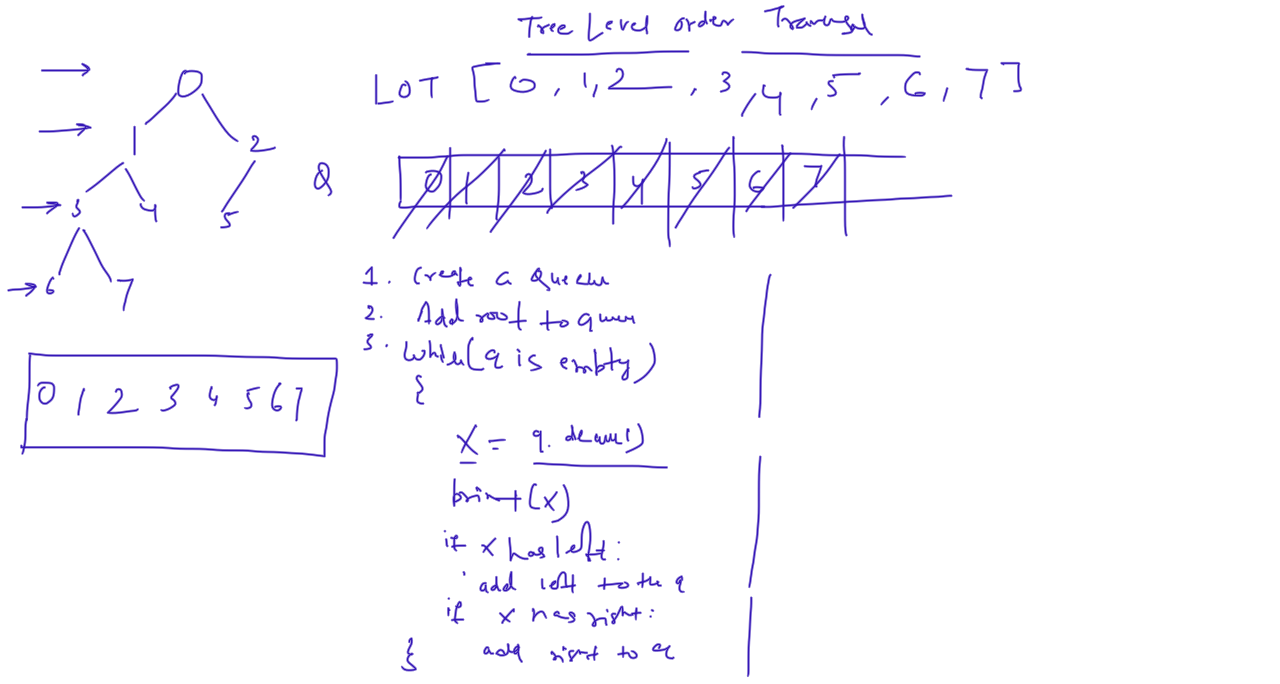 Tree Level order Traversal
LOT [0, 1, 2, 3, 4, 5, 6, 7]
0
1 2
3 4 5
6 7
Q 0 1 2 3 4 5 6 7
0 1 2 3 4 5 6 7
1. Create a Queue
2. Add root to queue
3. While(q is empty)
{
X = q.
print(x)
if x has left:
add left to the q
if x has right:
add right to q
}